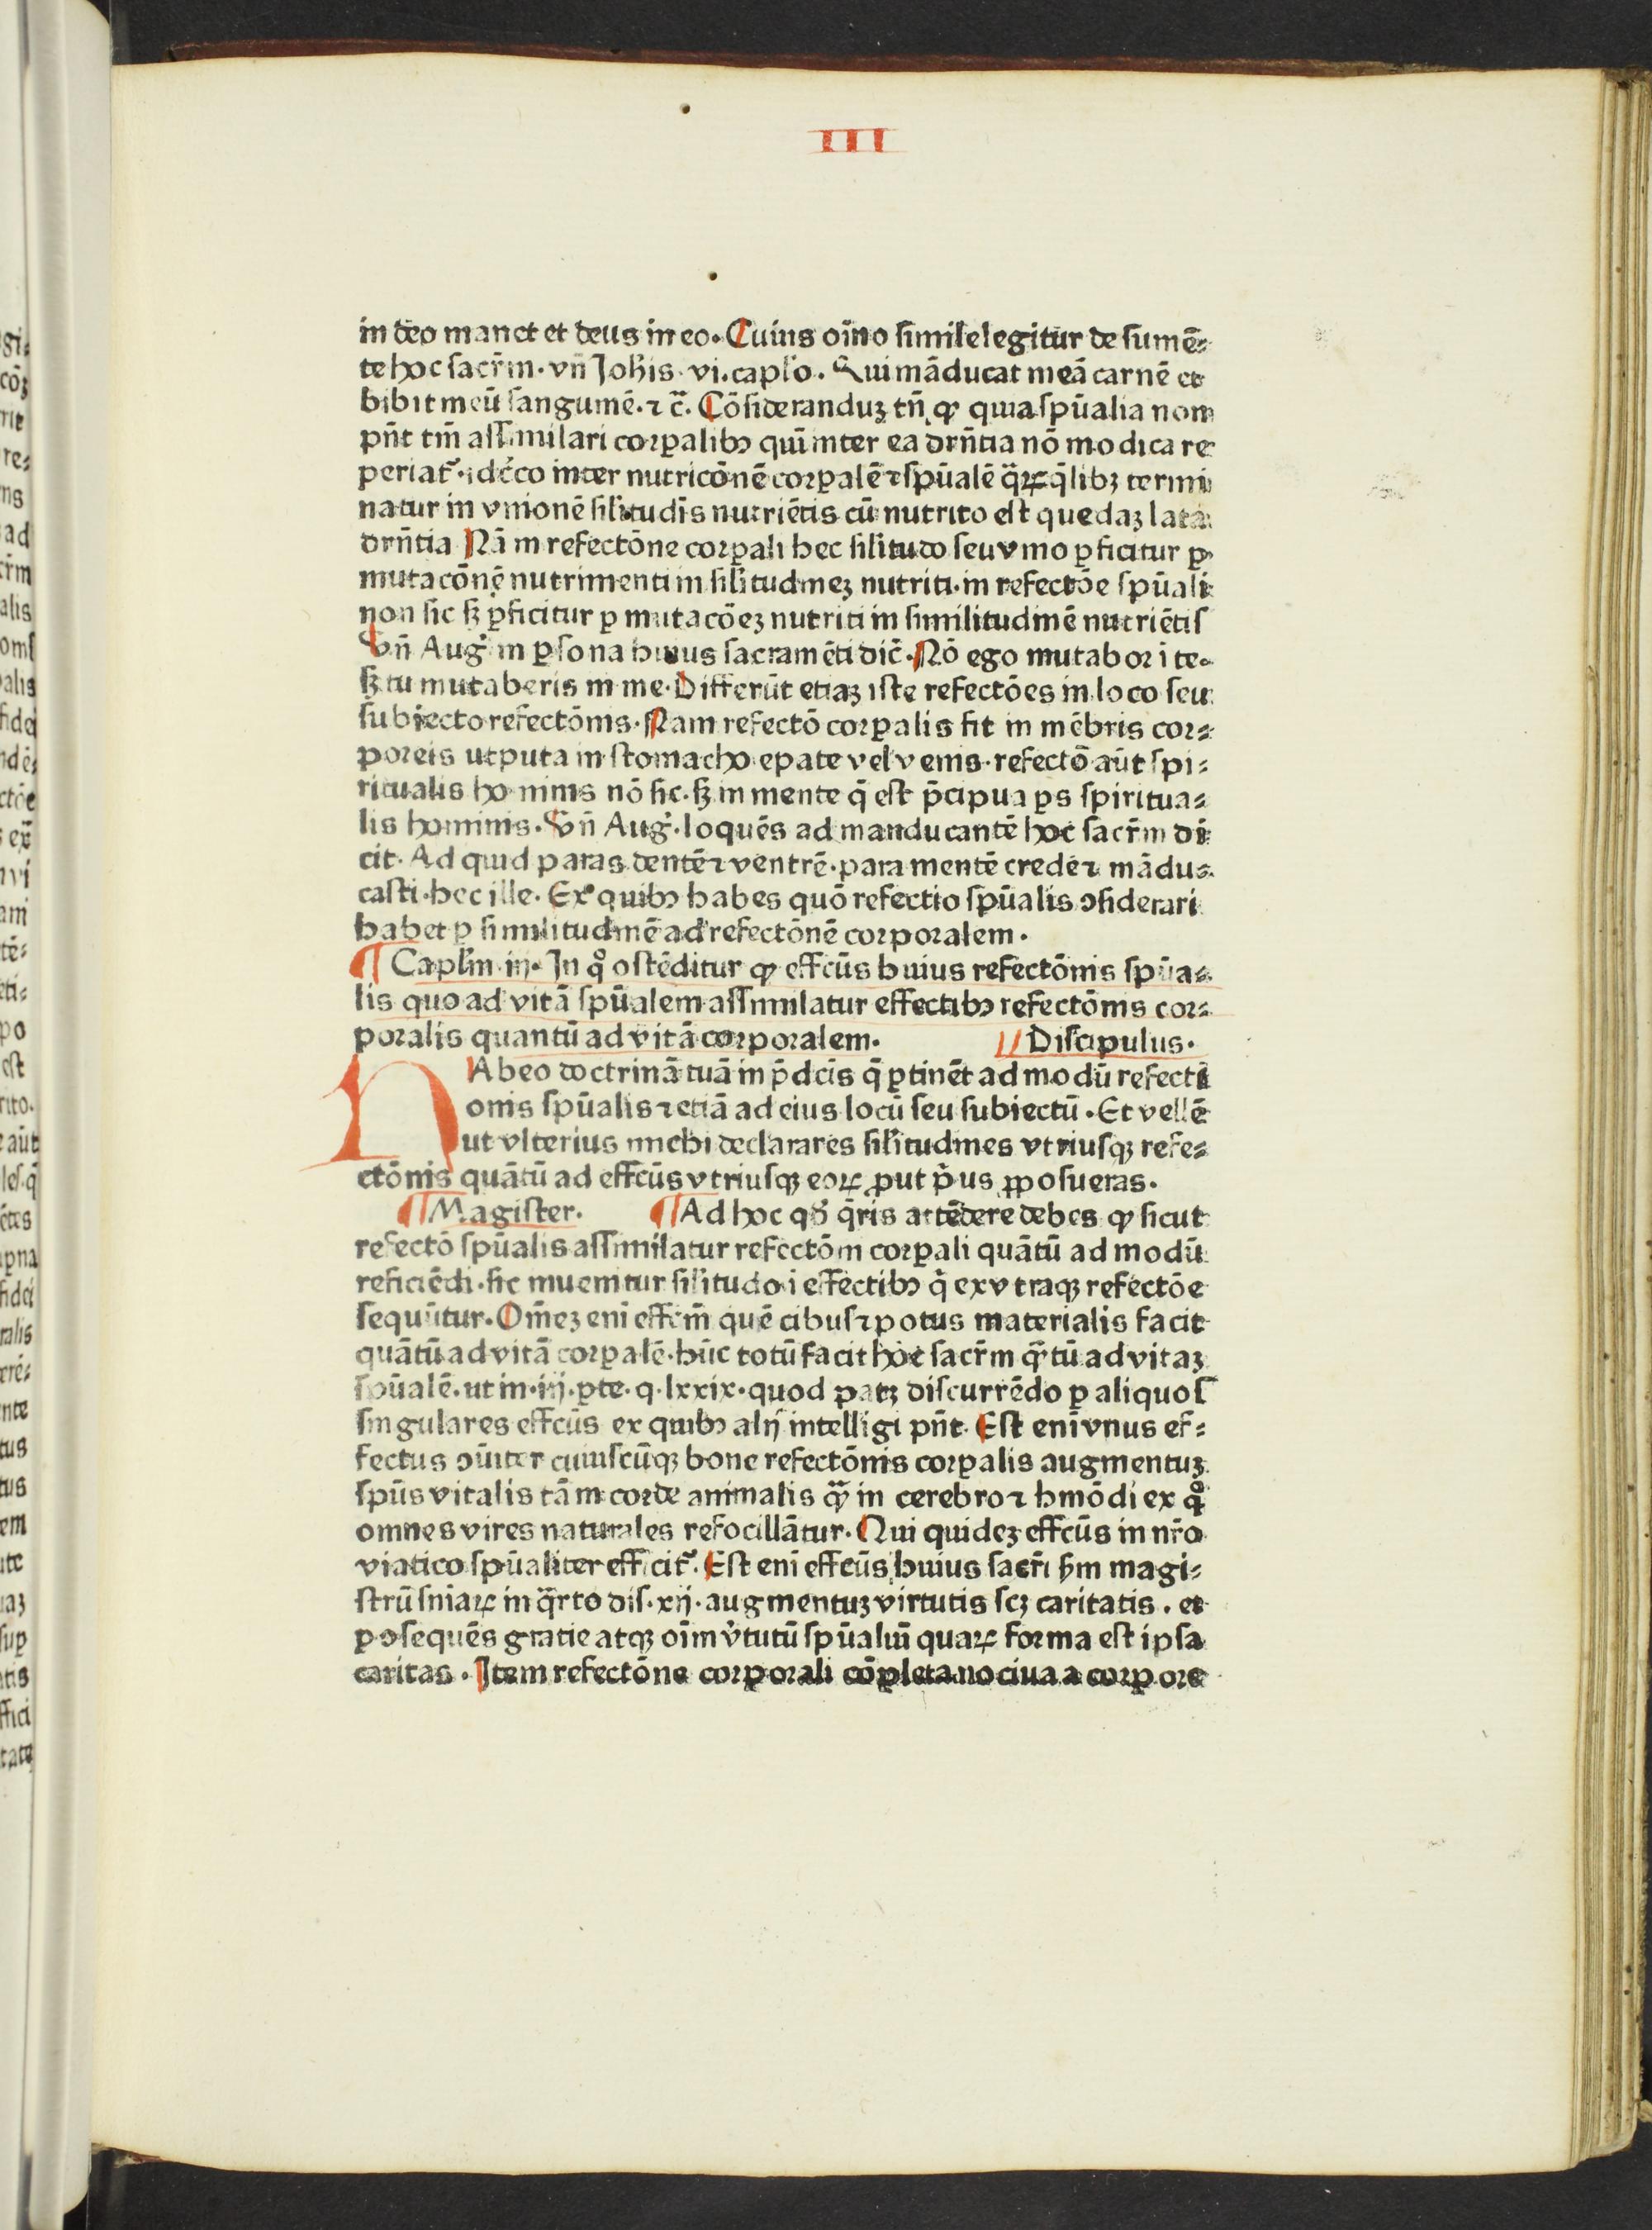 III
in deo manet et deus in eo. Cuius oĩno simile legitur de sumē⸗
te hoc sacr̄m. vñ Joh̄is. vi. capl̓o. Qui māducat meā carnē et
bibit meū ſanguinē. ⁊ c̄. Cōſideranduꝫ tñ ꝙ quia ſpūalia non
pn̄t tm̄ aſſimilari corꝑalibꝰ quin inter ea drn̄tia nō modica re
periat᷑. idcͨo inter nutricōnē corꝑalē ⁊ ſpūalē q̄ꝝ q̄libꝫ termi
natur in vnionē ſil̓itudīs nutriētis cū nutrito eſt quedaꝫ lata
drn̄tia Nā in refectōne corꝑali hec ſil̓itudo ſeu vnio ꝑficitur ꝑ
mutacōnē nutrimenti in ſil̓itudineꝫ nutriti. in refectōe ſpūali
non ſic ſꝫ ꝑficitur ꝑ mutacōeꝫ nutriti in ſimilitudinē nutriētiſ
Vñ Aug᷑ in ꝑſona huius ſacramēti dic̄. Nō ego mutabor ī te.
ſꝫ tu mutaberis in me. Differūt etiaꝫ iſte refectōes in loco ſeu
ſubiecto refectōnis. Nam refectō corꝑalis fit in mēbris cor⸗
poreis utputa in ſtomacho epate vel venis. refectō aūt ſpi⸗
ritualis hominis nō ſic. ſꝫ in mente q̄ eſt p̄cipua ꝑs ſpiritua⸗
lis hominis. Vñ Aug᷑. loquēs ad manducantē hoc ſacr̄m di
cit. Ad quid paras dentē ⁊ ventrē. para mentē crede ⁊ mādu⸗
caſti. hec ille. Ex quibꝰ habes quō refectio ſpūalis ꝯſiderari
habet ꝑ ſimilitudinē ad refectōnē corporalem.
¶ Capl̓m iij. In qͦ oſtēditur ꝙ effcūs huius refectōnis ſpūa⸗
lis quo ad vitā ſpūalem aſſimilatur effectibꝰ refectōnis cor⸗
poralis quantū ad vitā corporalem. // Diſcipulus.
HAbeo doctrinā tuā in p̄dcīs q̄ ꝑtinēt ad modū refecti
onis ſpūalis ⁊ etiā ad eius locū ſeu ſubiectū. Et vellē
ut vlterius michi declarares ſil̓itudines vtriuſqꝫ refe⸗
ctōnis quātū ad effcūs vtriuſqꝫ eoꝝ ꝓut p̄us ꝓpoſueras.
¶ Magiſter. ¶ Ad hoc qď q̄ris attēdere debes ꝙ ſicut
refectō ſpūalis aſſimilatur refectōni corꝑali quātū ad modū
reficiēdi. ſic inuenitur ſil̓itudo ī effectibꝰ q̄ ex vtraqꝫ refectōe
ſequūtur. Om̄eꝫ enī effcm̄ quē cibuſ ⁊ potus materialis facit
quātū ad vitā corꝑalē. hūc totū facit hoc ſacr̄m q̄tū ad vitaꝫ
ſpūalē. ut in. iij. ꝑte. q. lxxix. quod patꝫ diſcurrēdo ꝑ aliquoſ
ſingulares effcūs ex quibꝰ alij intelligi pn̄t. Eſt enī vnus ef⸗
fectus ꝯūiter cuiuſcūqꝫ bone refectōnis corꝑalis augmentuꝫ
ſpūs vitalis tā in corde animalis qͣ̄ in cerebro ⁊ hmōdi ex qͦ
omnes vires naturales refocillātur. Qui quideꝫ effcūs in nr̄o
viatico ſpūaliter efficit᷑. Eſt enī effcūs huius ſacr̄i ẜm magi⸗
ſtrū ſniaꝝ in q̄rto diſ. xij. augmentuꝫ virtutis ſcꝫ caritatis. et
ꝑ ꝯſequēs gratie atqꝫ oīm v̓tutū ſpūaliū quaꝝ forma eſt ipſa
caritas. Item refectōne corporali cōpleta nociua a corpore